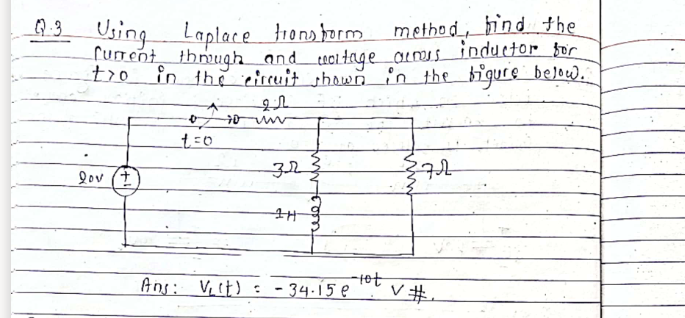 Q.3 Using Laplace transform method, find the
current through and voltage across inductor for
t>0 in the circuit shown in the figure below.
2Ω
t=0
20V
3Ω
7Ω
1H
Ans: V_L(t) = -34.15 e^-10t V #.